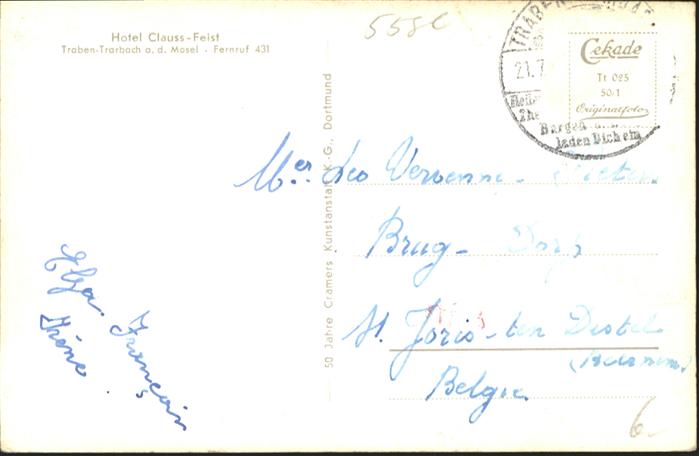 Hotel Clauss-Feist
Traben-Trarbach a. d. Mosel · Fernruf 431
558c
21.7
Burgen
laden Dich ein
Cekade
Tt 025
50/1
Originalfoto
50 Jahre Cramers Kunstanstalt K.-G., Dortmund
Mer Leo Vervenne -
Brug - Dorp
St. Joris-ten Distel
Belgie
Elza François
Irène
6